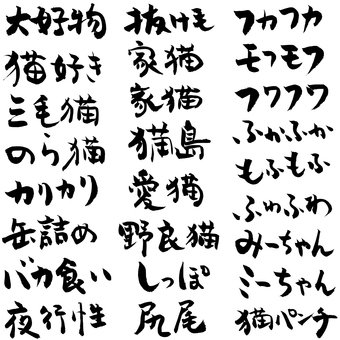 大好物
猫好き
三毛猫
のら猫
カリカリ
缶詰め
バカ食い
夜行性
抜け毛
家猫
家猫
猫島
愛猫
野良猫
しっぽ
尻尾
フカフカ
モフモフ
フワフワ
ふかふか
もふもふ
ふわふわ
みーちゃん
ミーちゃん
猫パンチ